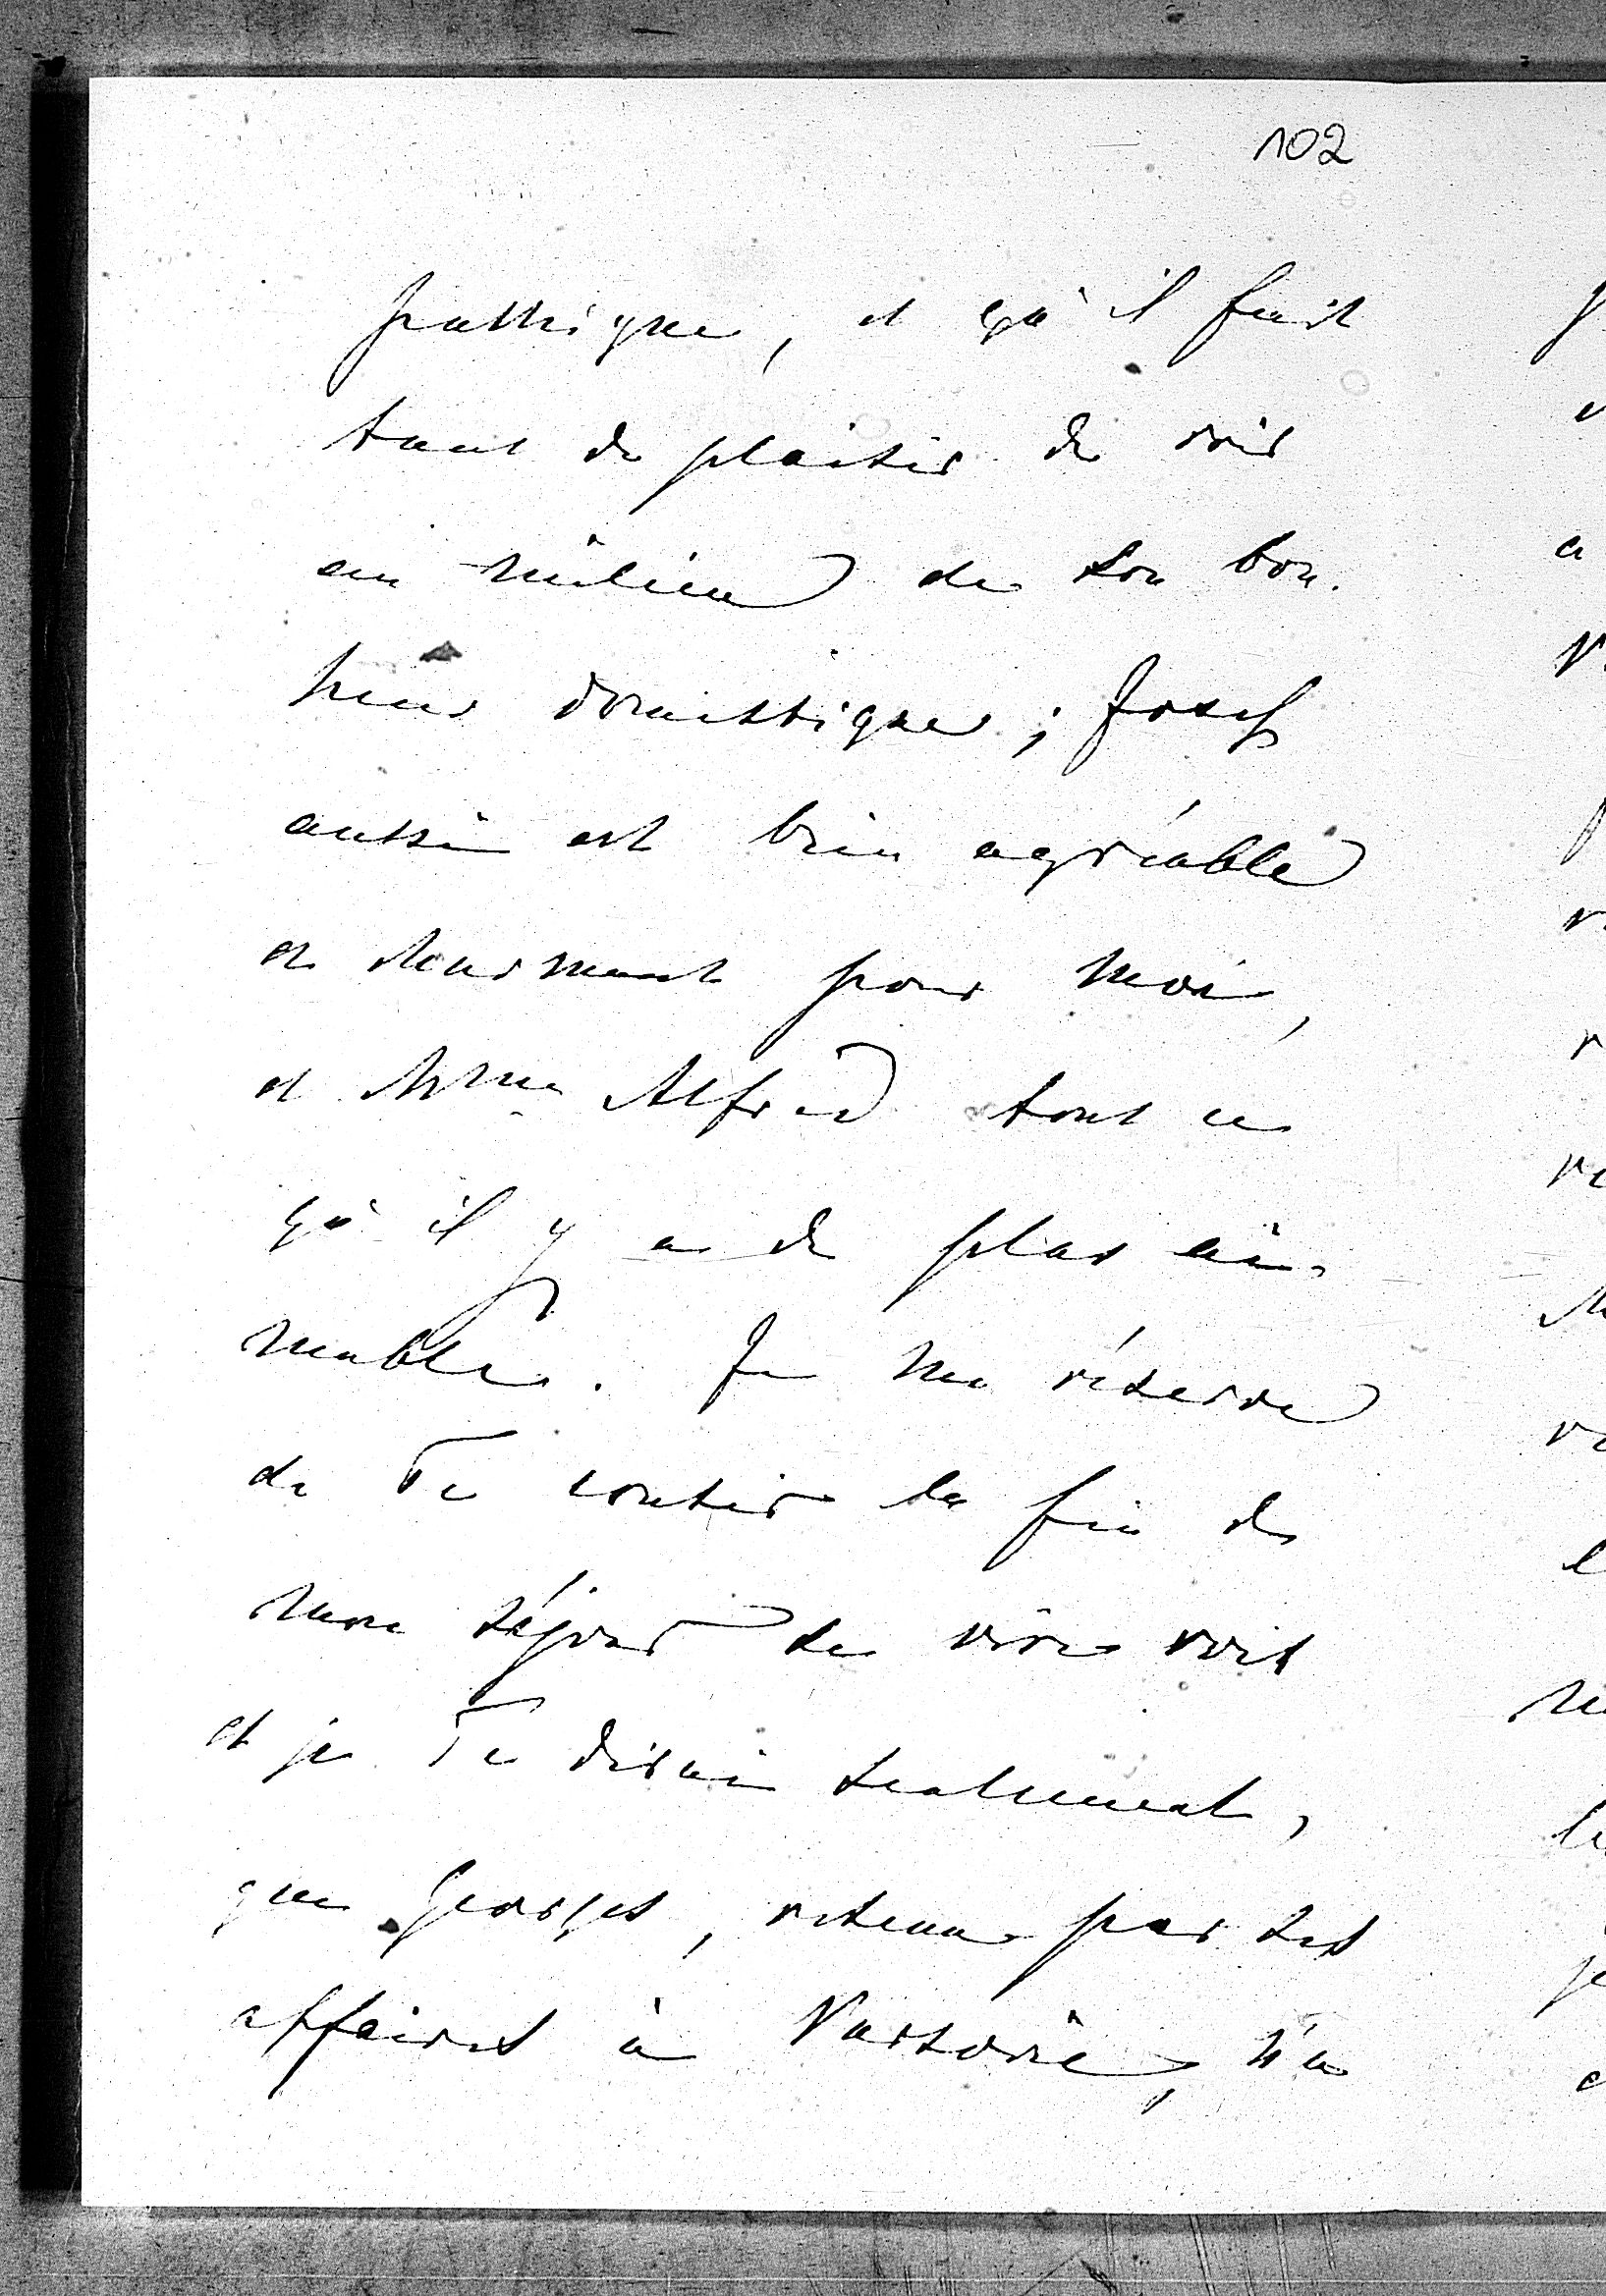 102
pathique, et qu'il fait
tant de plaisir de voir
au milieu de son bon-
heur domestique; Josef
aussi est bien agréable
et charmant pour moi,
et Mme Alfred tout ce
qu'il y a de plus ai-
mable. Je me réserve
de Te conter la fin de
mon séjour de vive voix
et je Te dirai seulement,
que Georges, retenu par ses
affaires à Varsovie, n'a